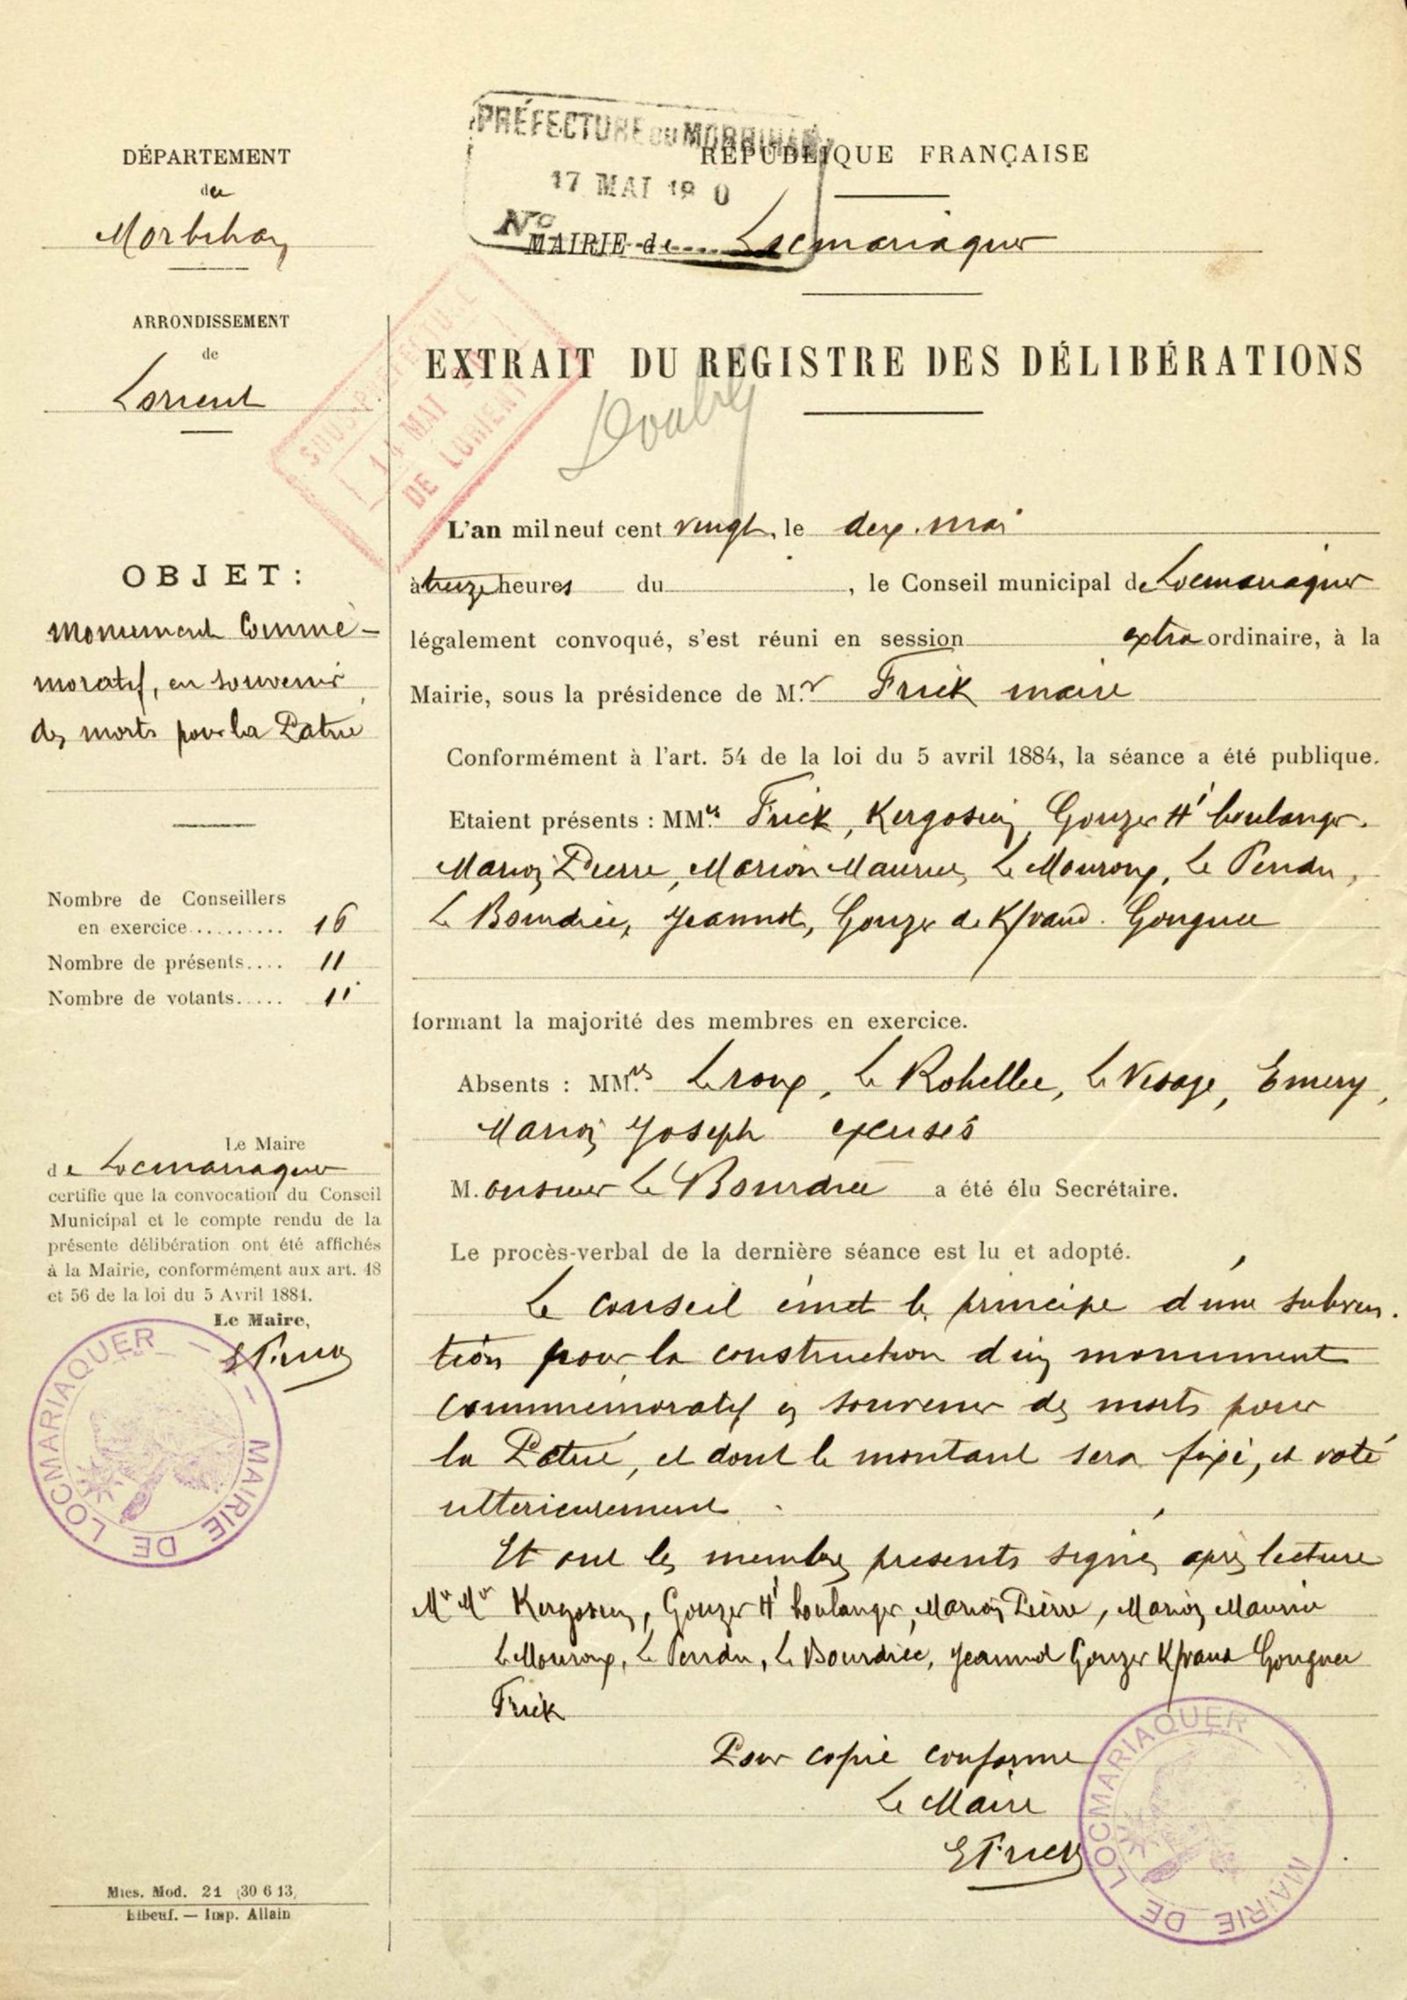 PRÉFECTURE DU MORBIHAN
17 MAI 19 0
No
RÉPUBLIQUE FRANÇAISE
MAIRIE de Locmariaquer
DÉPARTEMENT
du
Morbihan
ARRONDISSEMENT
de
Lorient
SOUS-PRÉFECTURE
14 MAI
DE LORIENT
EXTRAIT DU REGISTRE DES DÉLIBÉRATIONS
OBJET :
Monument Commé-
moratif, en souvenir
des morts pour la Patrie
Nombre de Conseillers
en exercice......... 16
Nombre de présents.... 11
Nombre de votants..... 11
Le Maire
de Locmariaquer
certifie que la convocation du Conseil
Municipal et le compte rendu de la
présente délibération ont été affichés
à la Mairie, conformément aux art. 48
et 56 de la loi du 5 Avril 1884.
Le Maire,
E Frick
MAIRIE DE LOCMARIAQUER
Mies. Mod. 21 (30 6 13)
Elbeuf. — Imp. Allain
L'an mil neuf cent vingt, le deux mai
à treize heures du , le Conseil municipal de Locmariaquer
légalement convoqué, s'est réuni en session extra ordinaire, à la
Mairie, sous la présidence de M.r Frick maire
Conformément à l'art. 54 de la loi du 5 avril 1884, la séance a été publique.
Etaient présents : MM.rs Frick, Kergosien, Gouzer Hi boulanger.
Marion Pierre, Marion Maurice, Le Mouroux, Le Pendu,
Le Bourdiec, Jeannot, Gouzer de K/vaud. Gouguec
formant la majorité des membres en exercice.
Absents : MM.rs Leroux, Le Rohellec, Le Visage, Emery,
Marion Joseph excusés
M. onsieur Le Bourdiec a été élu Secrétaire.
Le procès-verbal de la dernière séance est lu et adopté.
Le conseil émet le principe d'une subven.
tion pour la construction d'un monument
commémoratif en souvenir des morts pour
la Patrie, et dont le montant sera fixé, et voté
ultérieurement.
Et ont les membres présents signé, après lecture
Mr Mr Kergosien, Gouzer Hi boulanger, Marion Pierre, Marion Maurice
Le Mouroux, Le Pendu, Le Bourdiec, Jeannot Gouzer K/vaud Gouguec
Frick
Pour copie conforme
Le Maire
E Frick
MAIRIE DE LOCMARIAQUER